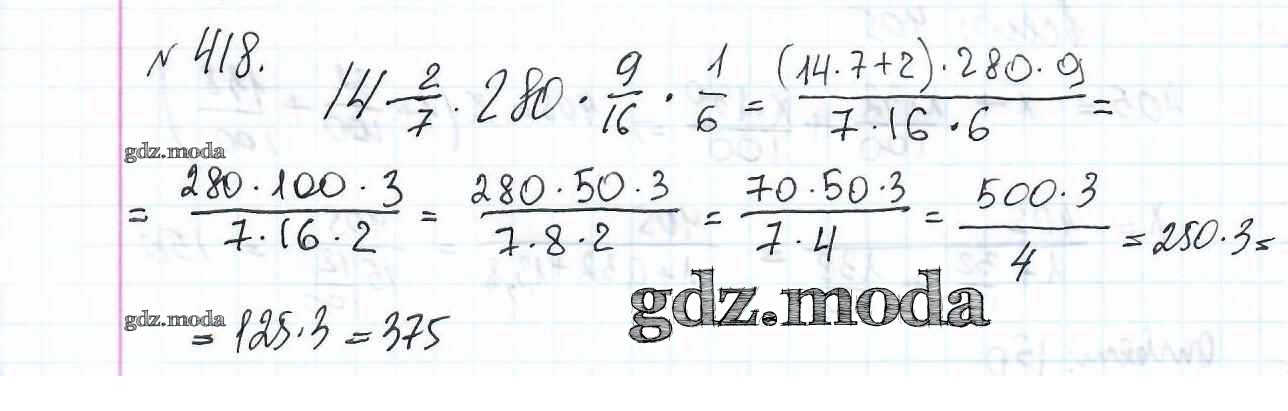 № 418.
14 2/7 · 280 · 9/16 · 1/6 = (14·7+2)·280·9 / 7·16·6 =
gdz.moda
= 280·100·3 / 7·16·2 = 280·50·3 / 7·8·2 = 70·50·3 / 7·4 = 500·3 / 4 = 250·3 =
gdz.moda
gdz.moda
= 125·3 = 375